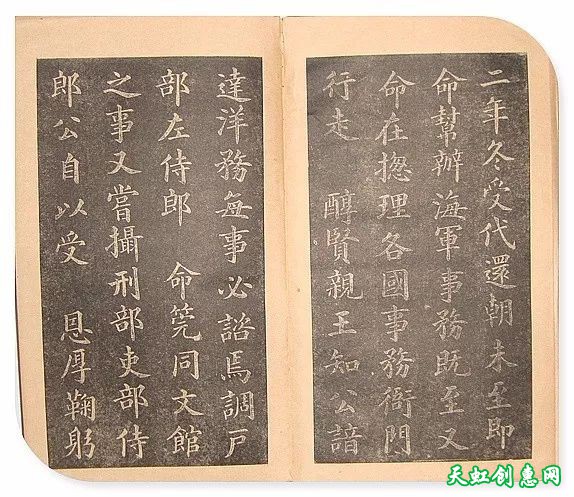 二年冬受代還朝未至即
命幫辦海軍事務既至又
命在揔理各國事務衙門
行走 醇賢親王知公諳
達洋務每事必諮焉調戸
部左侍郎 命筦同文館
之事又嘗攝刑部吏部侍
郎公自以受 恩厚鞠躬
天虹创意网